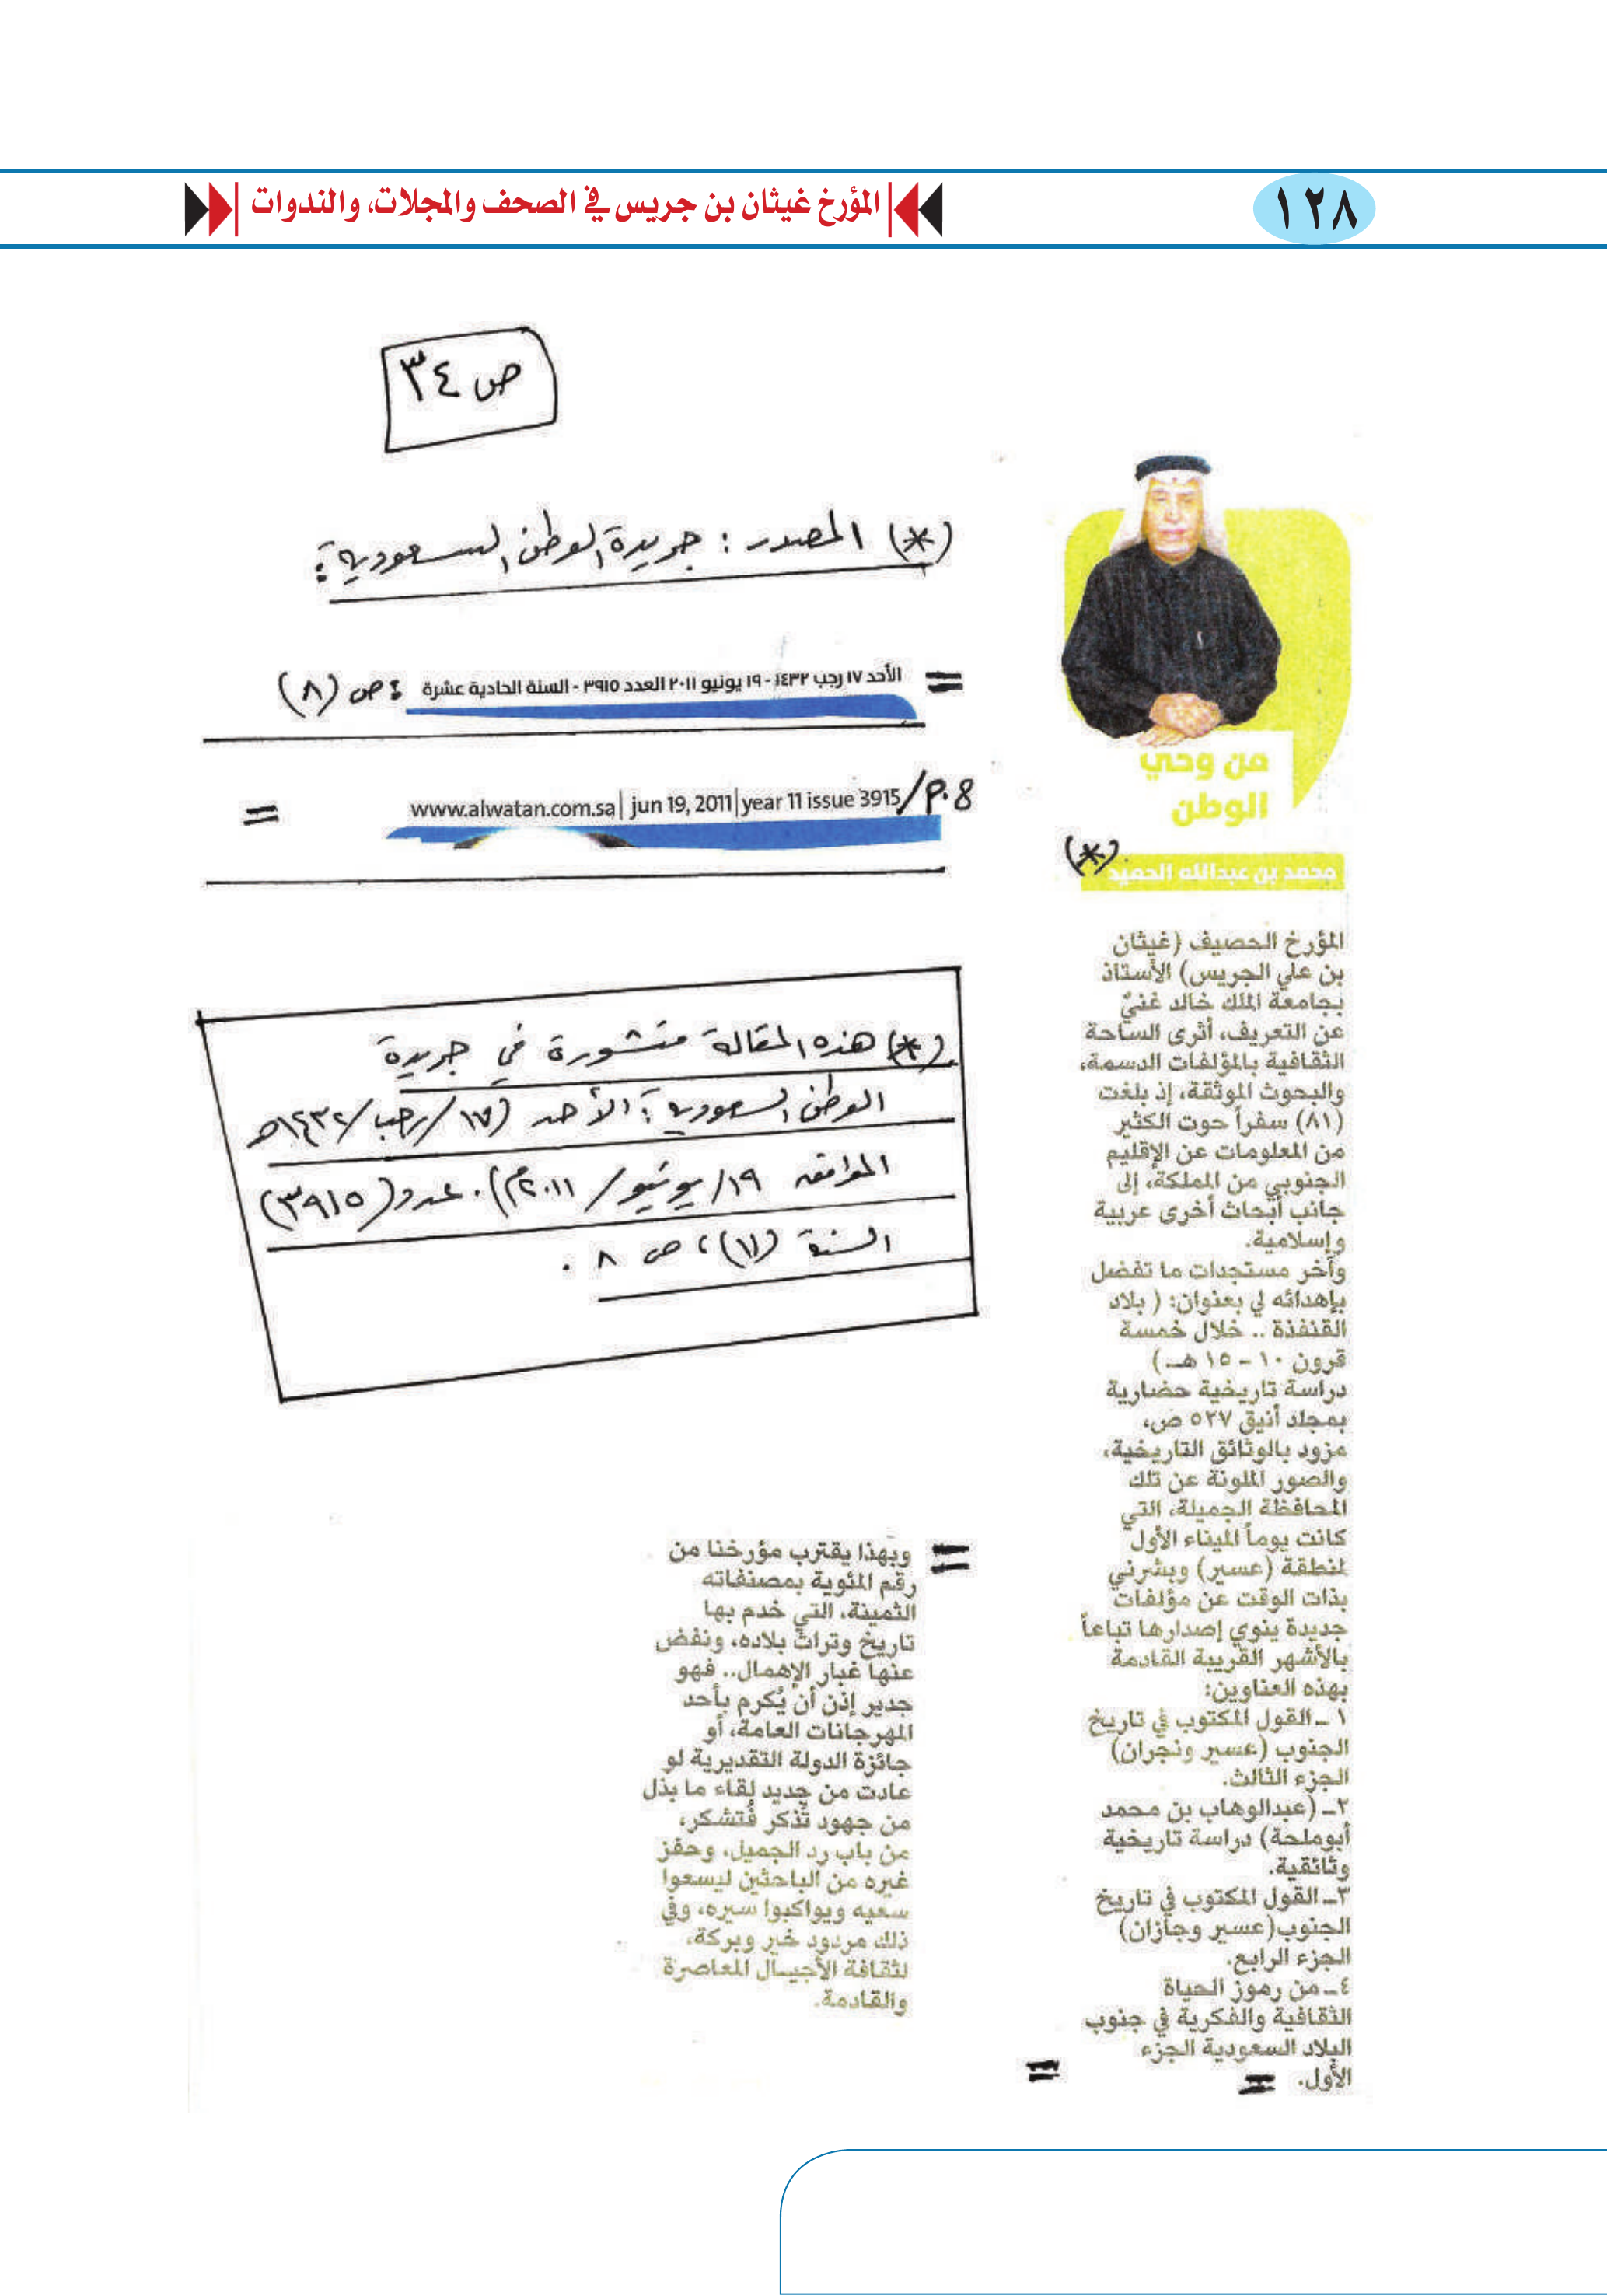 ١٢٨
المؤرخ غيثان بن جريس في الصحف والمجلات، والندوات
ص ٣٤
(*) المصدر : جريدة الوطن السعودية :
= الأحد ١٧ رجب ١٤٣٢ - ١٩ يونيو ٢٠١١ العدد ٣٩١٥ - السنة الحادية عشرة ؛ ص (٨)
www.alwatan.com.sa| jun 19, 2011|year 11 issue 3915/P.8
=
(*) هذه المقالة منشورة في جريدة
الوطن السعودية : الأحد (١٧/رجب/١٤٣٢هـ
الموافق ١٩/يونيو/٢٠١١م). عدد (٣٩١٥)
السنة (١١)، ص ٨ .
من وحي
الوطن
(*)
محمد بن عبدالله الحميد
المؤرخ الحصيف (غيثان
بن علي الجريس) الأستاذ
بجامعة الملك خالد غنيٌ
عن التعريف، أثرى الساحة
الثقافية بالمؤلفات الدسمة،
والبحوث الموثقة، إذ بلغت
(٨١) سفراً حوت الكثير
من المعلومات عن الإقليم
الجنوبي من المملكة، إلى
جانب أبحاث أخرى عربية
وإسلامية.
وآخر مستجدات ما تفضل
بإهدائه لي بعنوان: ( بلاد
القنفذة .. خلال خمسة
قرون ١٠ - ١٥ هـ )
دراسة تاريخية حضارية
بمجلد أنيق ٥٢٧ ص،
مزود بالوثائق التاريخية،
والصور الملونة عن تلك
المحافظة الجميلة، التي
كانت يوماً الميناء الأول
لمنطقة (عسير) وبشرني
بذات الوقت عن مؤلفات
جديدة ينوي إصدارها تباعاً
بالأشهر القريبة القادمة
بهذه العناوين:
١ ـ القول المكتوب في تاريخ
الجنوب (عسير ونجران)
الجزء الثالث.
٢ـ (عبدالوهاب بن محمد
أبوملحة) دراسة تاريخية
وثائقية.
٣ـ القول المكتوب في تاريخ
الجنوب(عسير وجازان)
الجزء الرابع.
٤ـ من رموز الحياة
الثقافية والفكرية في جنوب
البلاد السعودية الجزء
الأول. =
=
= وبهذا يقترب مؤرخنا من
رقم المئوية بمصنفاته
الثمينة، التي خدم بها
تاريخ وتراث بلاده، ونفض
عنها غبار الإهمال.. فهو
جدير إذن أن يُكرم بأحد
المهرجانات العامة، أو
جائزة الدولة التقديرية لو
عادت من جديد لقاء ما بذل
من جهود تُذكر فتُشكر،
من باب رد الجميل، وحفز
غيره من الباحثين ليسعوا
سعيه ويواكبوا سيره، وفي
ذلك مردود خير وبركة،
لثقافة الأجيال المعاصرة
والقادمة.